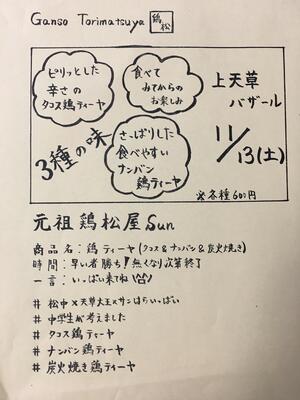 Ganso Torimatsuya 鶏松
ピリッとした
辛さの
タコス鶏ティーヤ
食べて
みてからの
お楽しみ
上天草
バザール
11/13(土)
3種の味
さっぱりした
食べやすい
ナンバン
鶏ティーヤ
※各種600円
元祖鶏松屋Sun
商品名:鶏ティーヤ(タコス&ナンバン&炭火焼き)
時間:早い者勝ち!無くなり次第終了
一言:いっぱい来てね
# 松中×天草大王×サンはらいっぱい
# 中学生が考えました
# タコス鶏ティーヤ
# ナンバン鶏ティーヤ
# 炭火焼き鶏ティーヤ